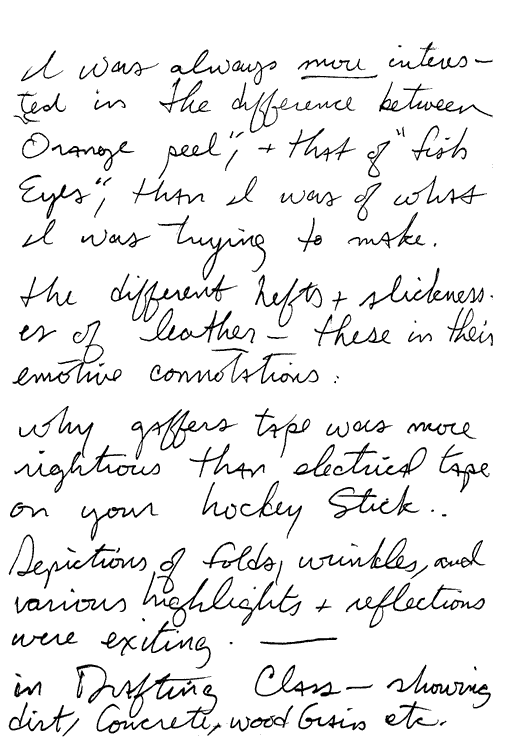 I was always more interes-
ted in the difference between
Orange peel", + that of "fish
Eyes", than I was of what
I was trying to make.
the different hefts + slickness-
es of leather - these in their
emotive connotations:
why gaffers tape was more
rightious than electrical tape
on your hockey Stick..
Depictions of folds, wrinkles, and
various highlights + reflections
were exiting. —
in Drafting Class - showing
dirt, Concrete, wood Grain etc.